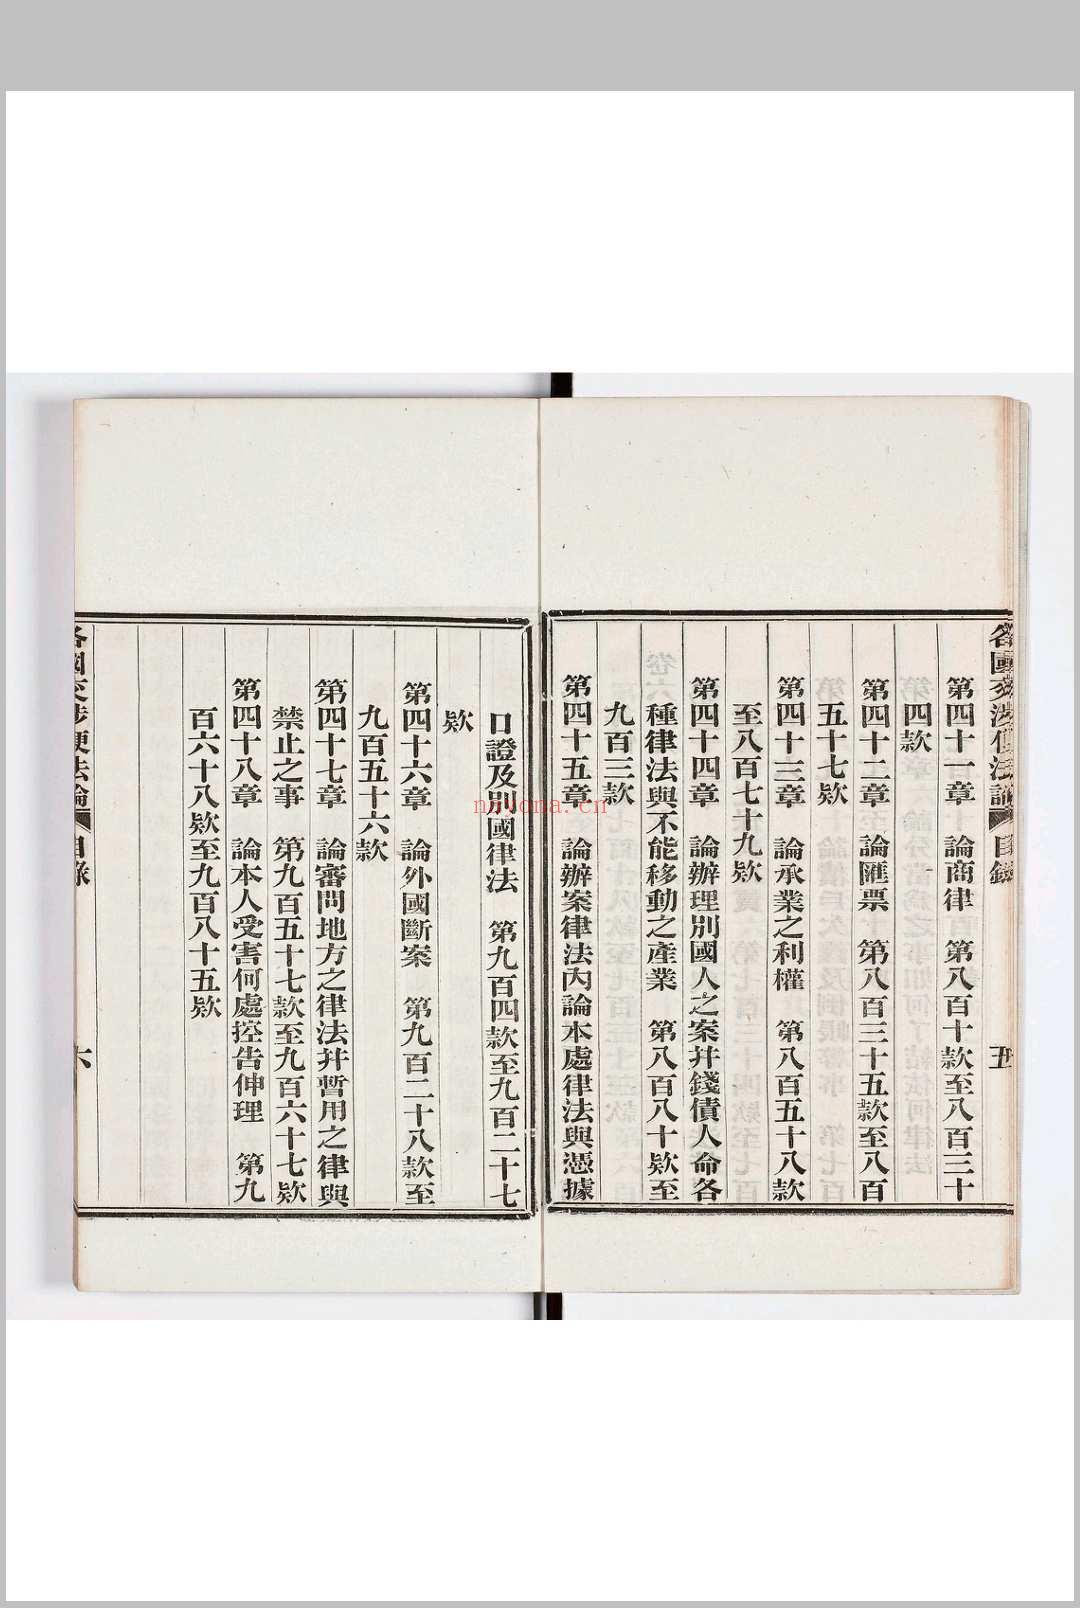 各國交涉便法論 目錄 五
第四十一章 論商律 第八百十款至八百三十
四款
第四十二章 論匯票 第八百三十五款至八百
五十七款
第四十三章 論承業之利權 第八百五十八款
至八百七十九款
第四十四章 論辦理別國人之案幷錢債人命各
種律法與不能移動之產業 第八百八十款至
九百三款
第四十五章 論辦案律法內論本處律法與憑據
口證及別國律法 第九百四款至九百二十七
款
第四十六章 論外國斷案 第九百二十八款至
九百五十六款
第四十七章 論審問地方之律法幷暫用之律與
禁止之事 第九百五十七款至九百六十七款
第四十八章 論本人受害何處控告伸理 第九
百六十八款至九百八十五款
各國交涉便法論 目錄 六
nayona.cn